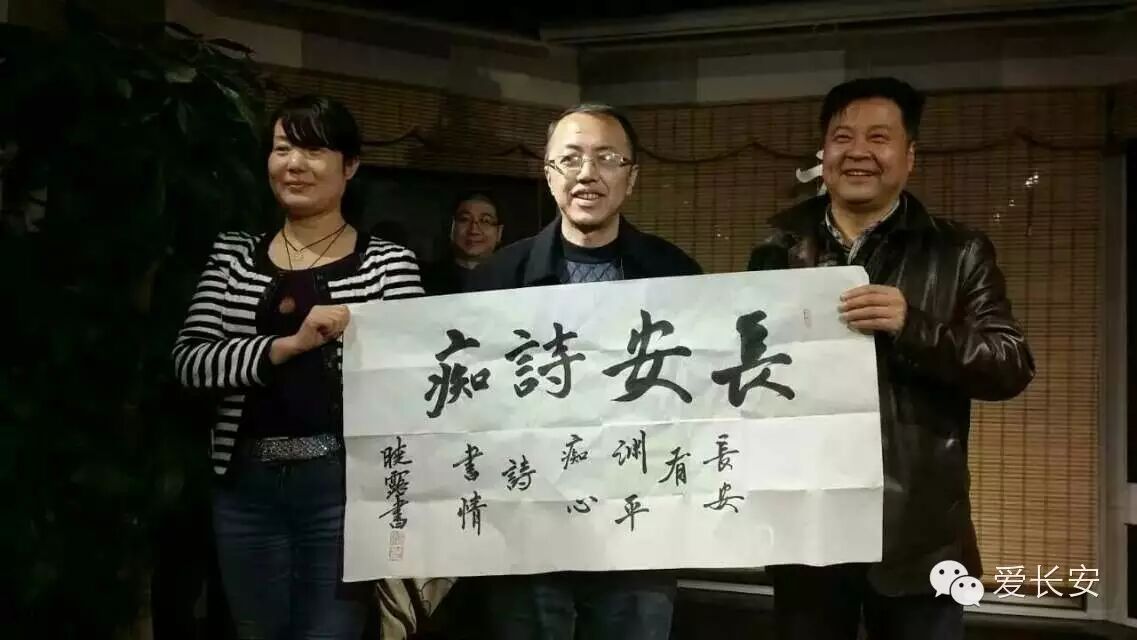 長安詩痴
長安
有
渊平
痴心
詩
書情
暁露書
爱长安